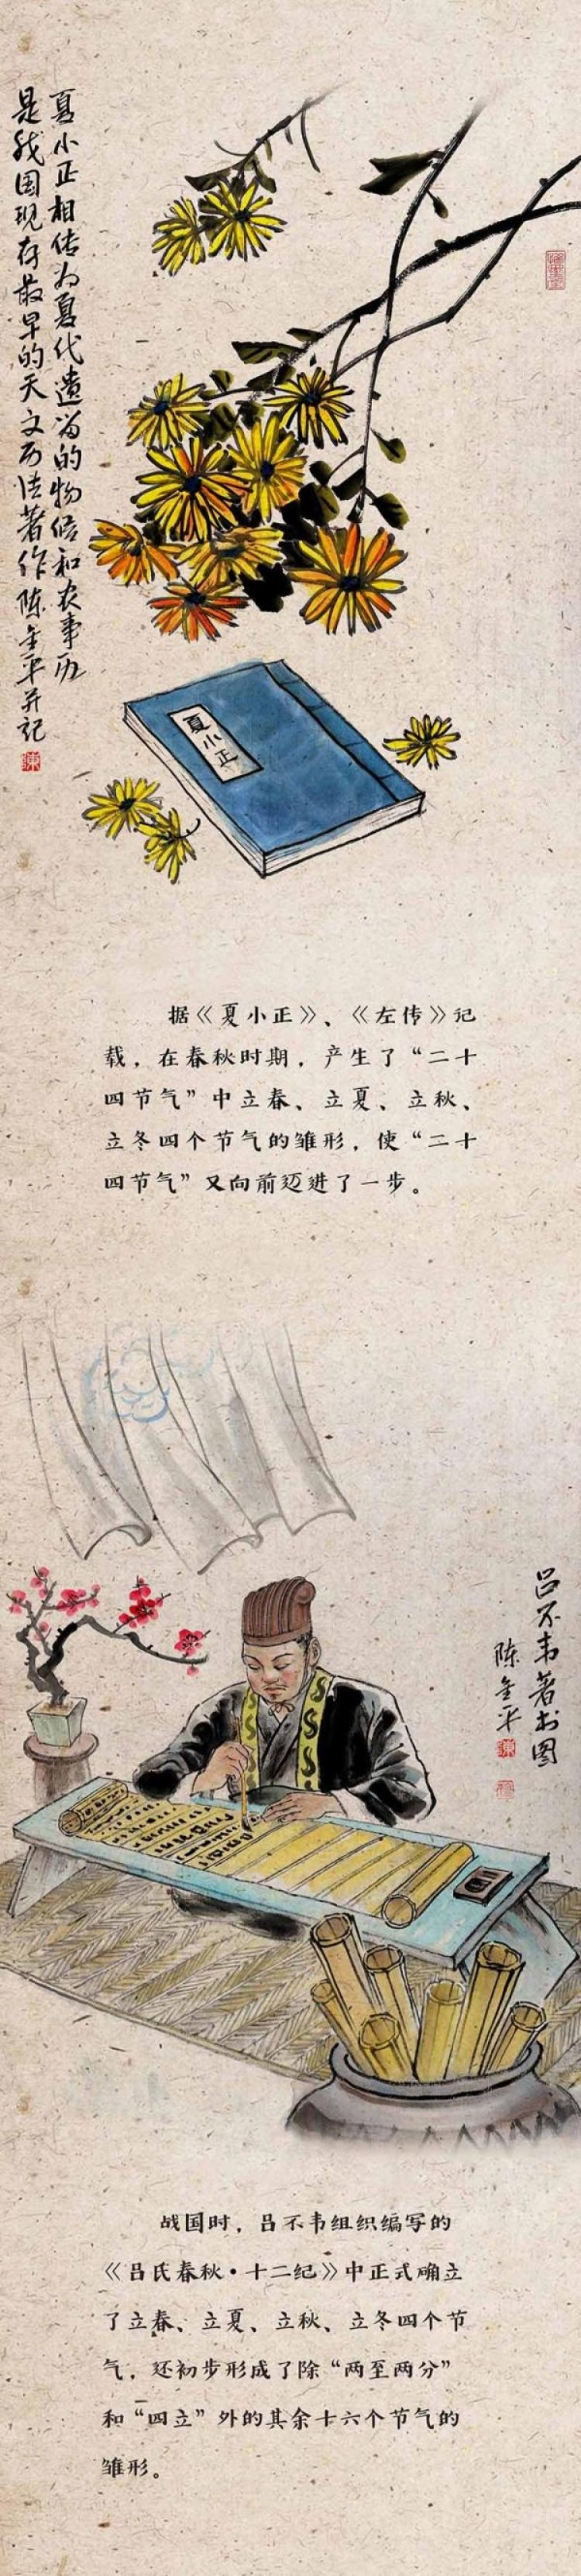 夏小正相传为夏代遗留的物候和农事历
是我国现存最早的天文历法著作陈金平并记
夏小正
据《夏小正》、《左传》记
载，在春秋时期，产生了“二十
四节气”中立春、立夏、立秋、
立冬四个节气的雏形，使“二十
四节气”又向前迈进了一步。
吕不韦著书图
陈金平
战国时，吕不韦组织编写的
《吕氏春秋·十二纪》中正式确立
了立春、立夏、立秋、立冬四个节
气，还初步形成了除“两至两分”
和“四立”外的其余十六个节气的
雏形。